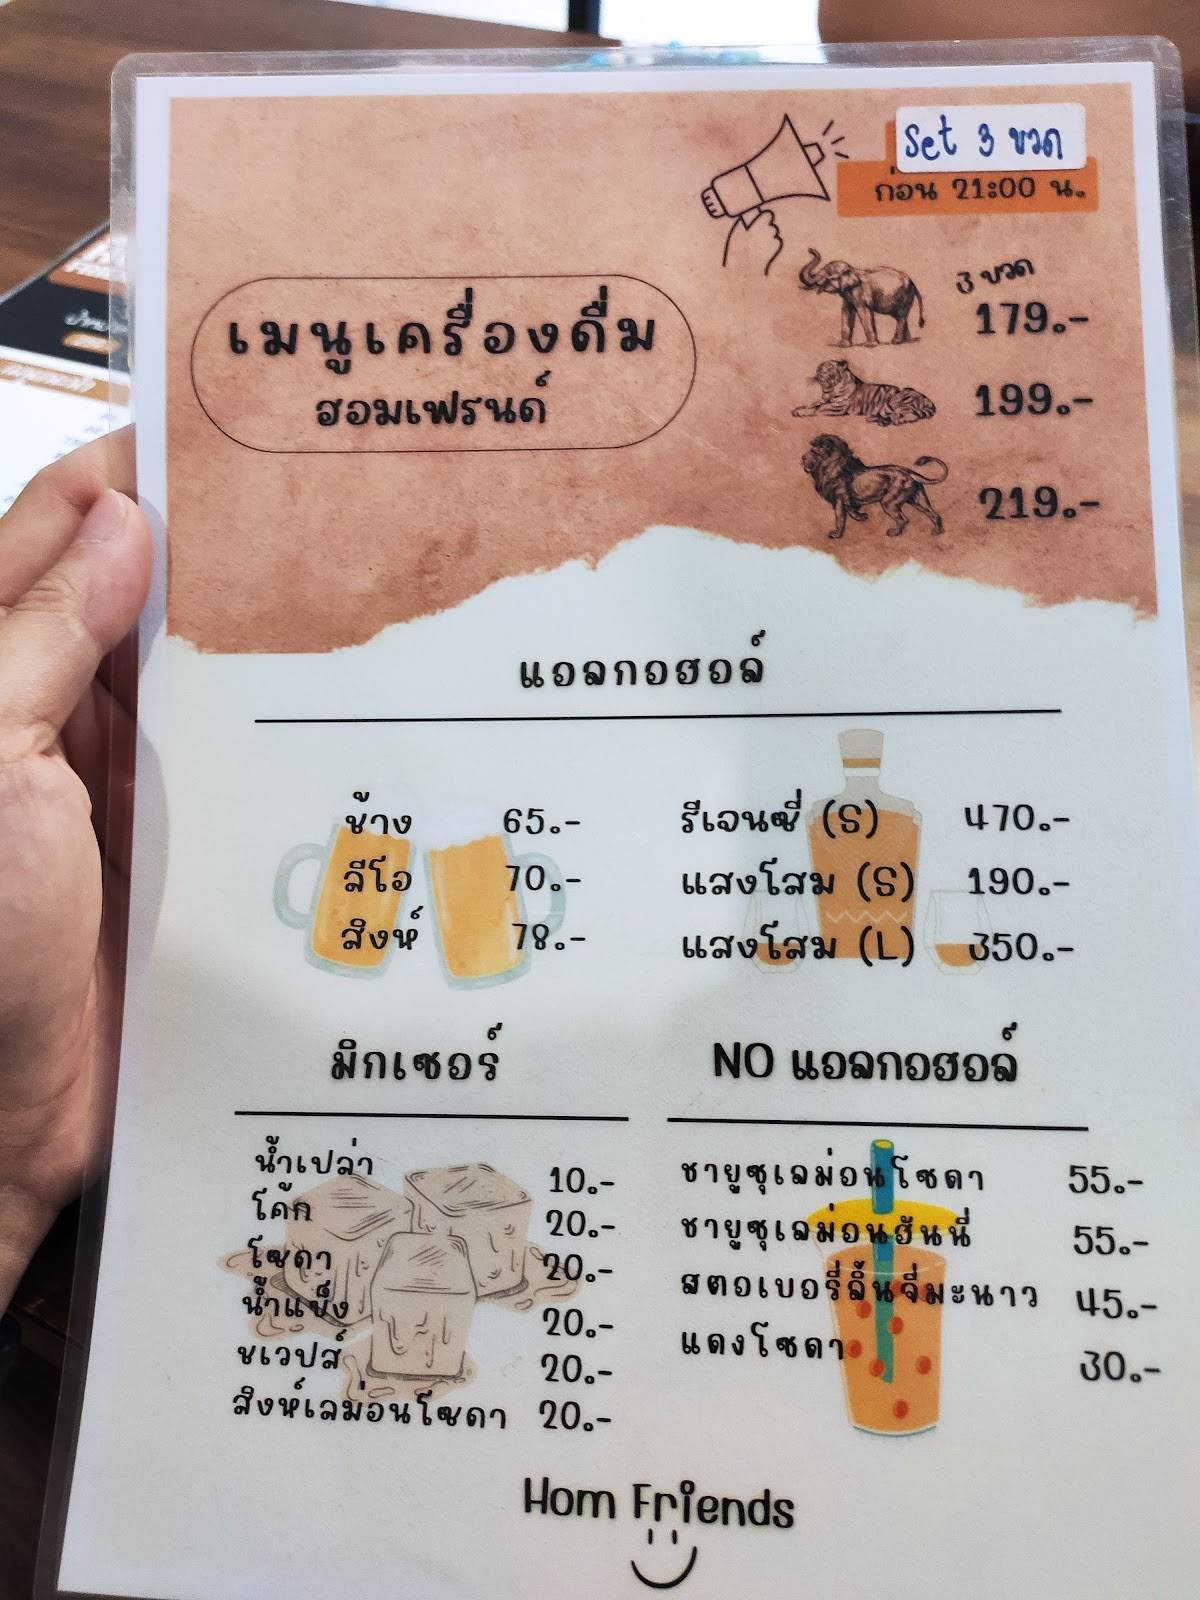 Set 3 ขวด
ก่อน 21:00 น.
3 ขวด
179.-
199.-
219.-
เมนูเครื่องดื่ม
ฮอมเฟรนด์
แอลกอฮอล์
ช้าง 65.-
ลีโอ 70.-
สิงห์ 78.-
รีเจนซี่ (S) 470.-
แสงโสม (S) 190.-
แสงโสม (L) 350.-
มิกเซอร์
น้ำเปล่า 10.-
โค้ก 20.-
โซดา 20.-
น้ำแข็ง 20.-
ชเวปส์ 20.-
สิงห์เลม่อนโซดา 20.-
NO แอลกอฮอล์
ชายูซุเลม่อนโซดา 55.-
ชายูซุเลม่อนฮันนี่ 55.-
สตอเบอรี่ลิ้นจี่มะนาว 45.-
แดงโซดา 30.-
Hom Friends